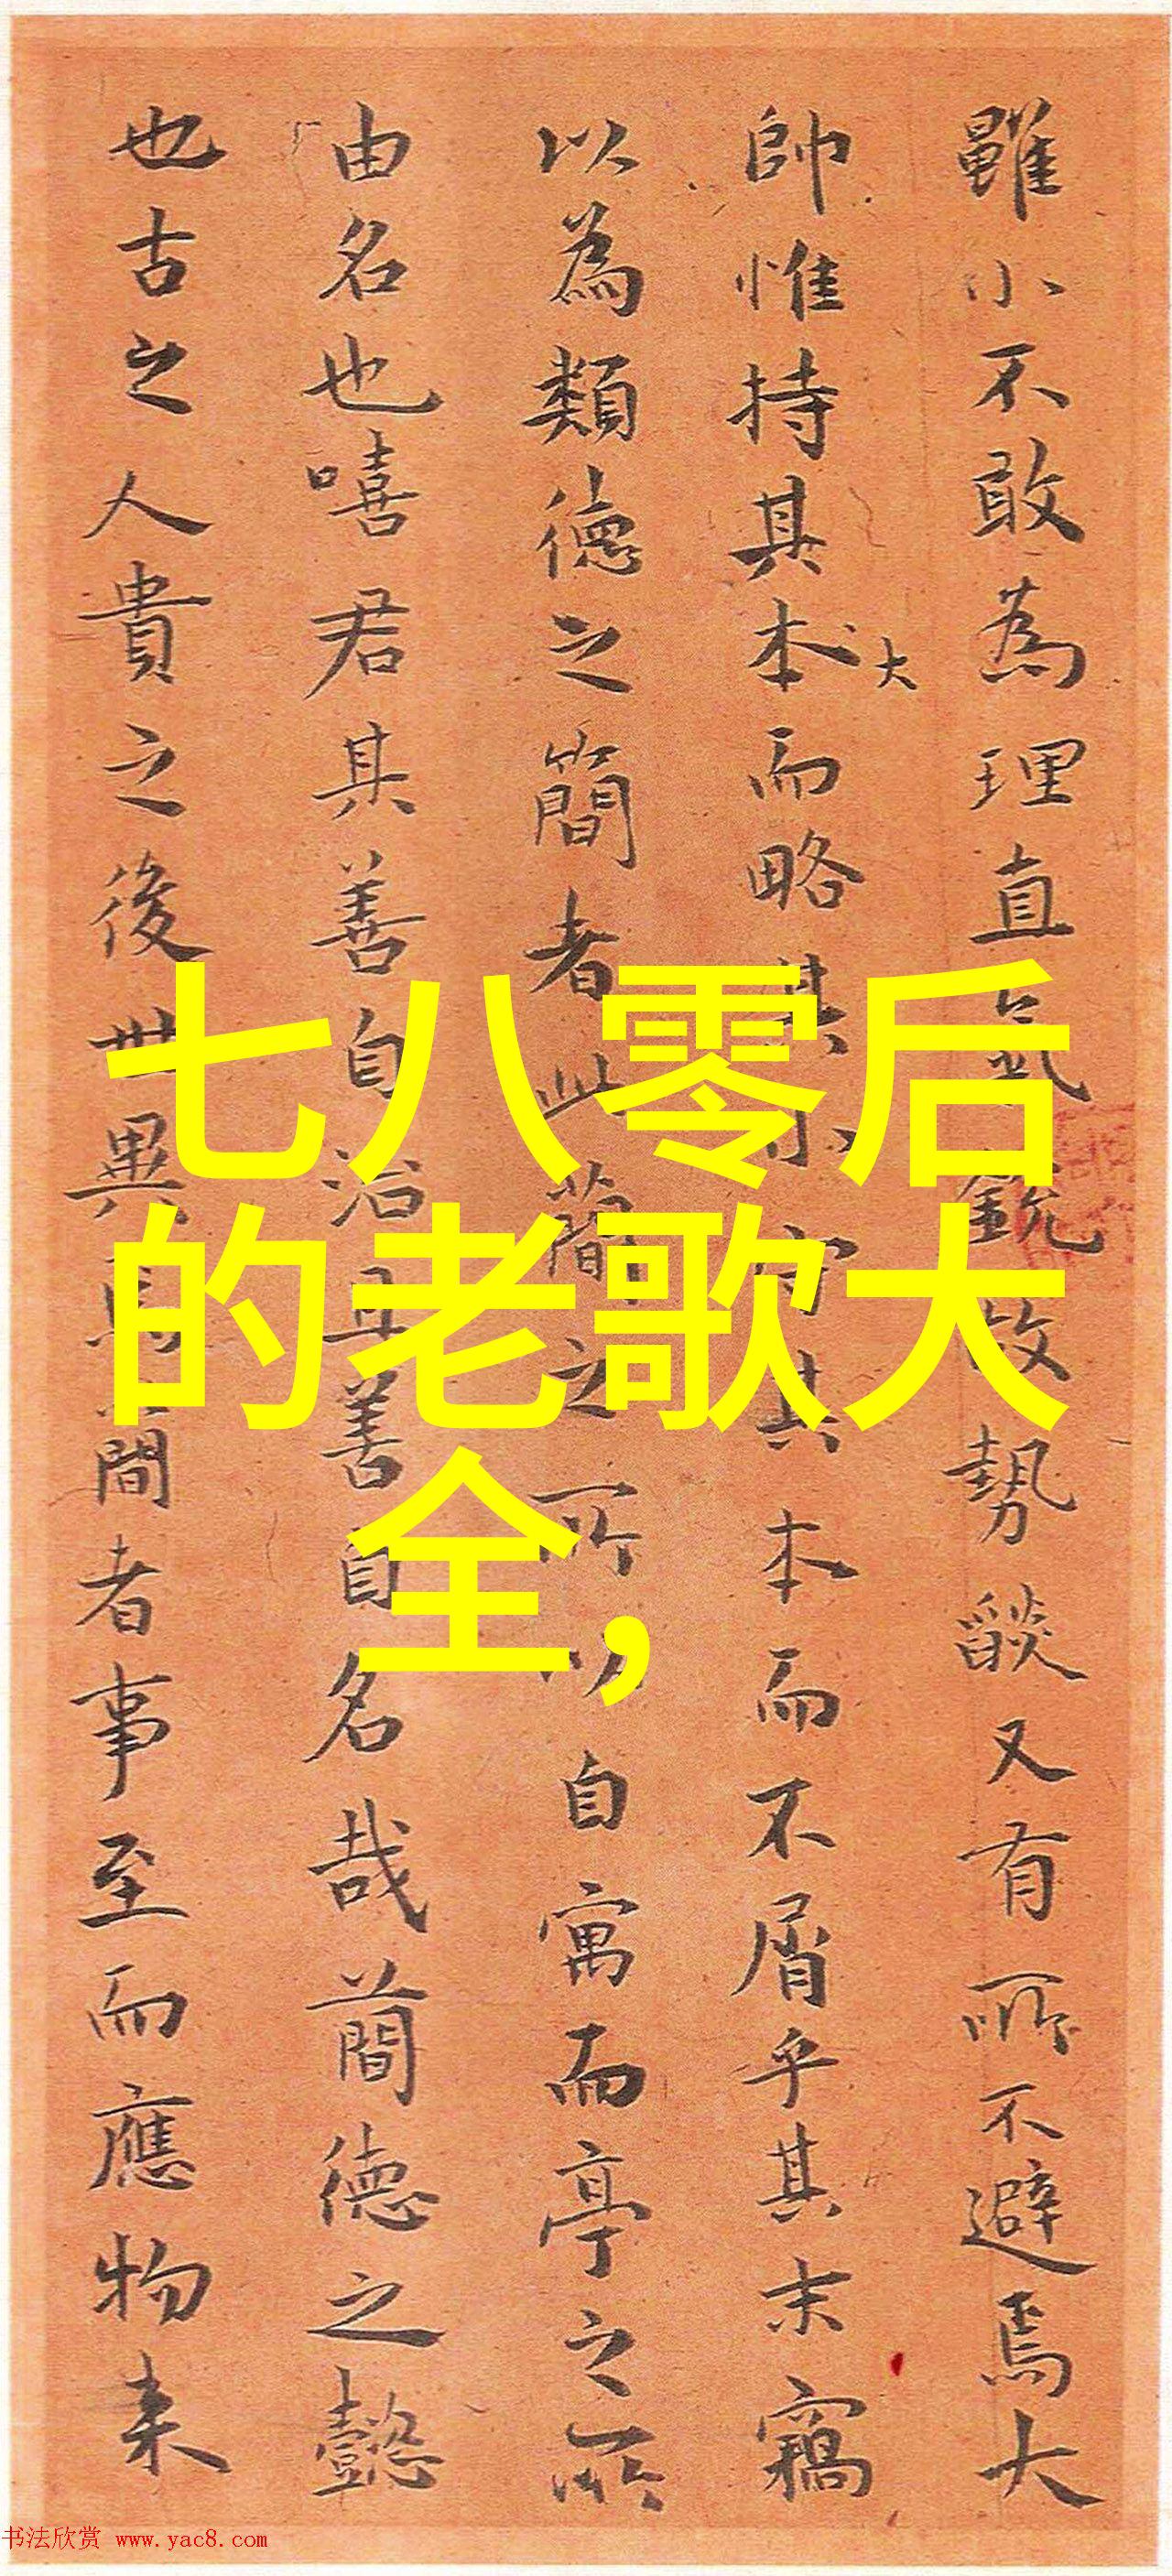 雖小不敢為理直氣銳故勢燄又有所不避焉大
帥惟持其本而略其小守其本而不屑乎其末竊
大
以為類德之簡者此簡之所以自寓而亭之所
由名也嘻君其善自治且善自名哉蕳德之懿
也古之人貴之後世異焉簡者事至而應物来
七八零后
的老歌大
全,
书法欣赏 www.yac8.com